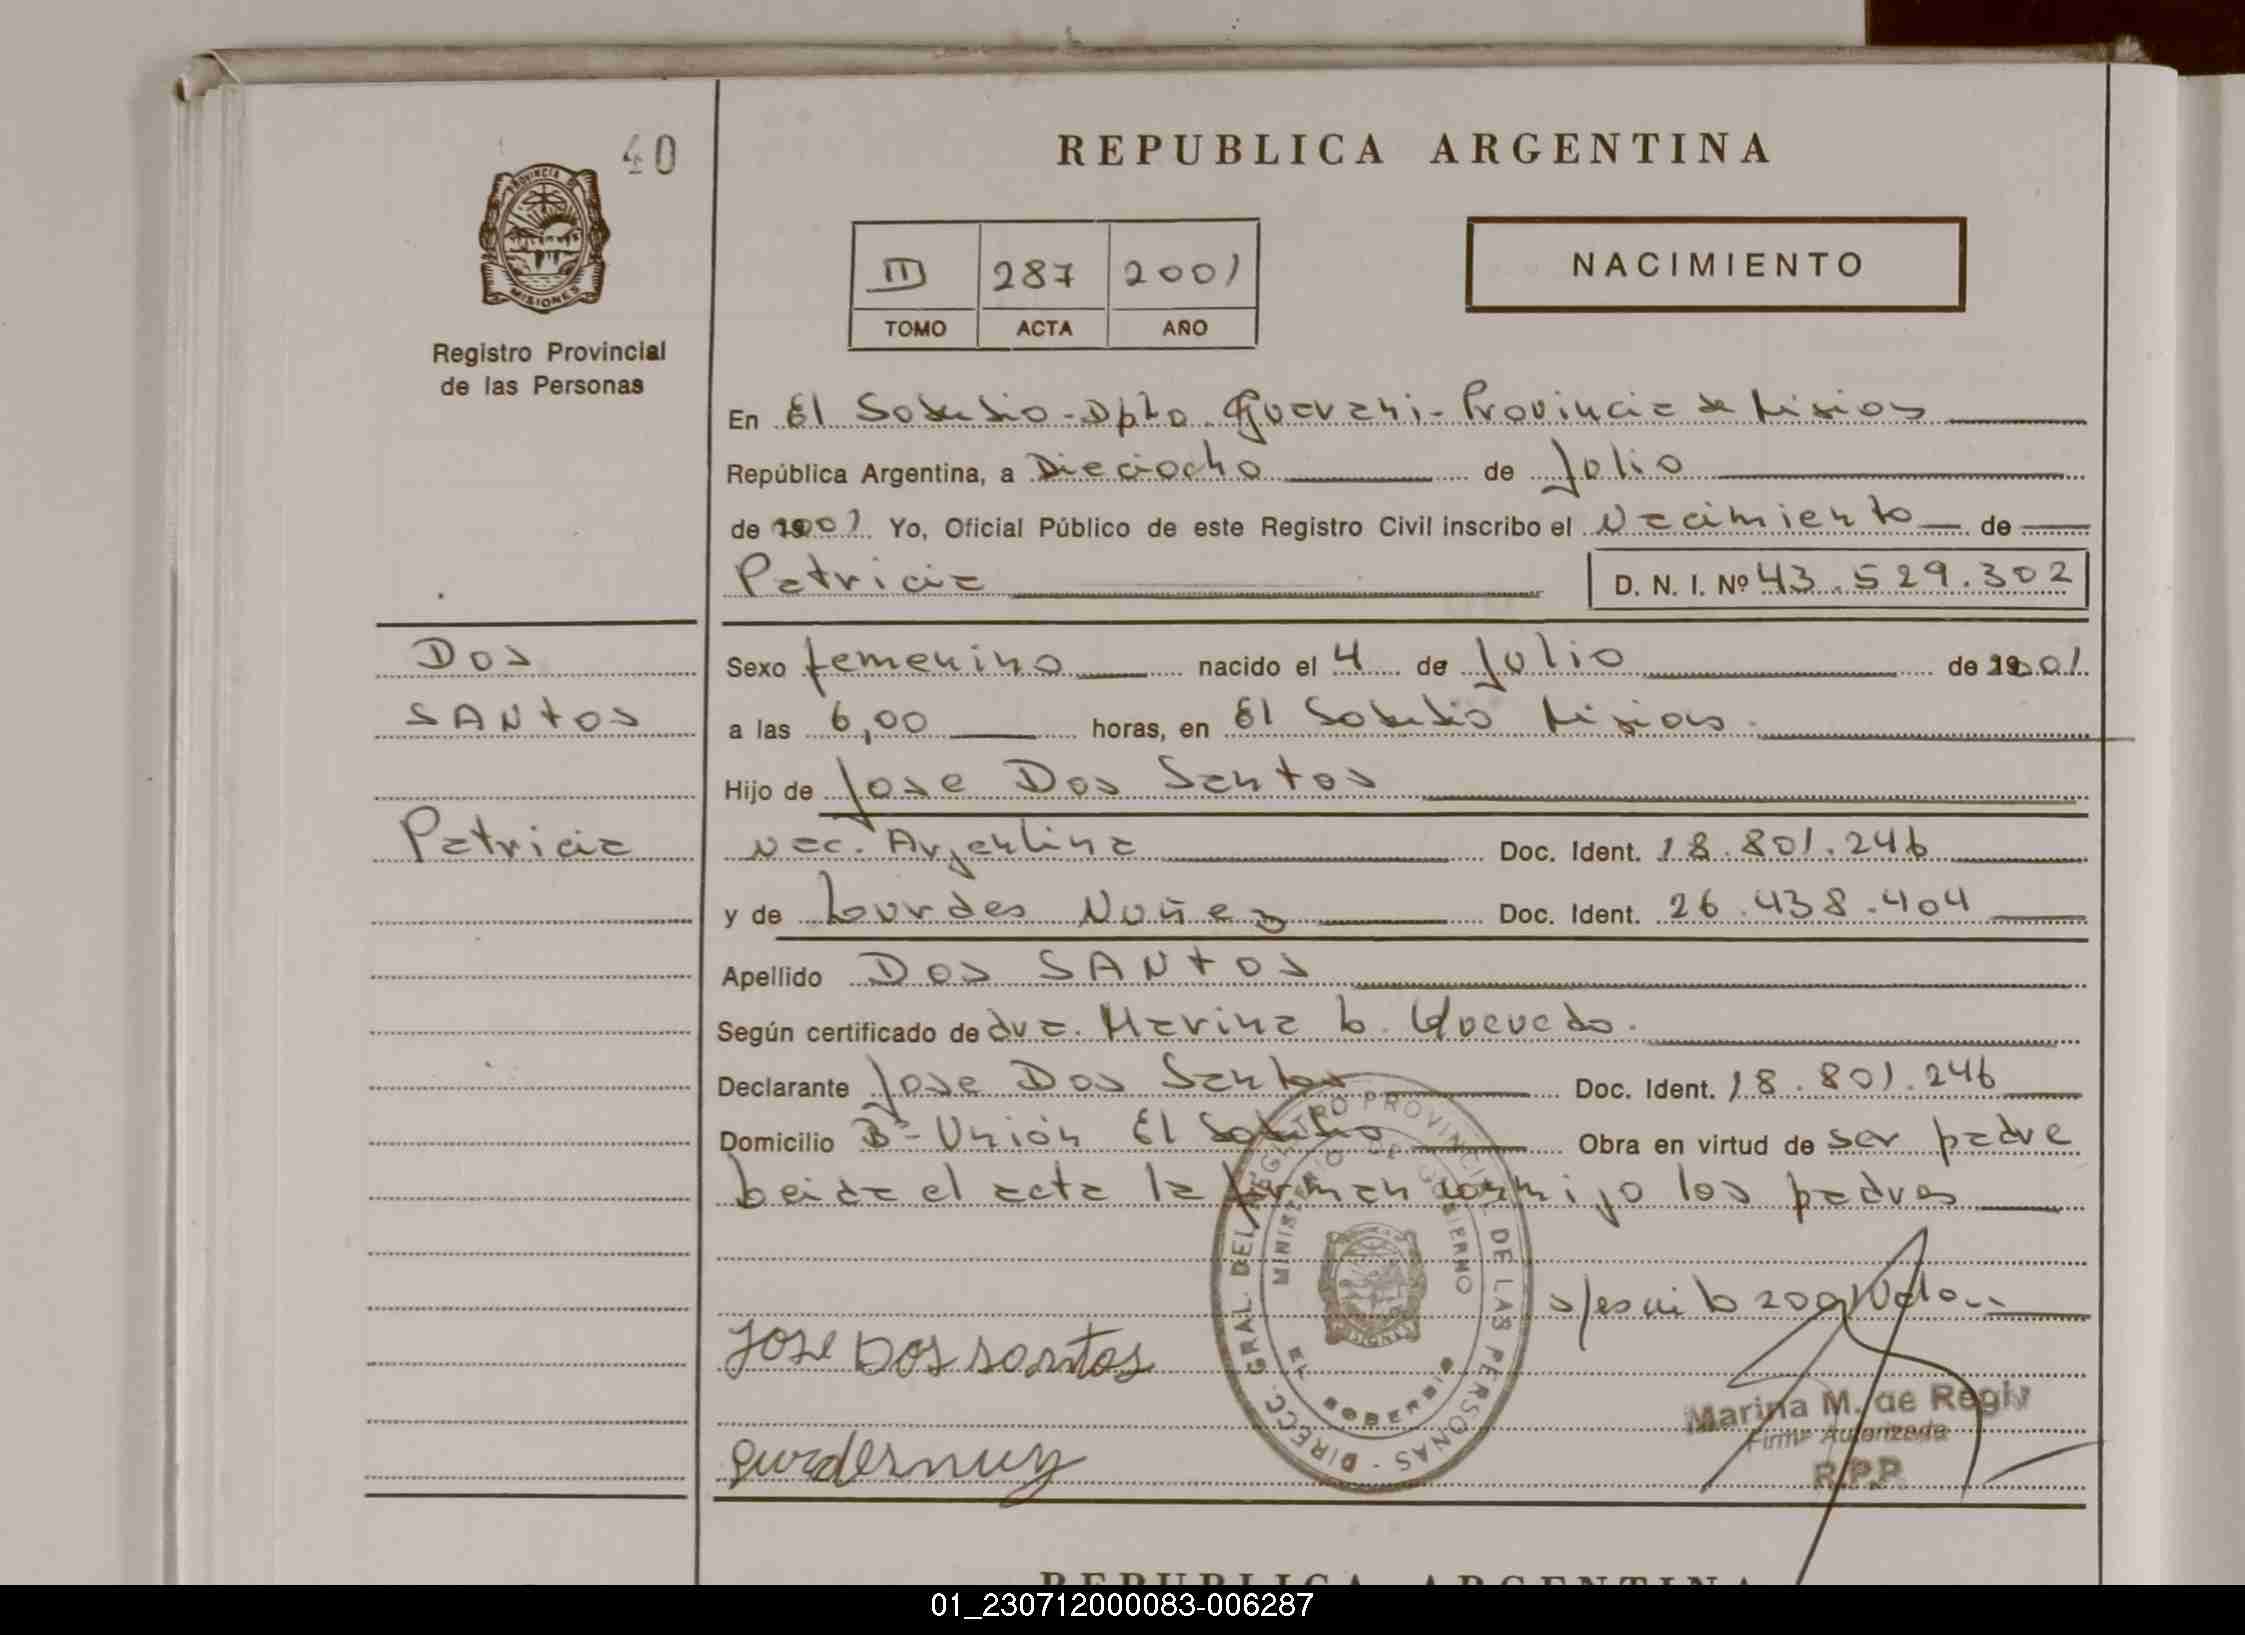 40
PROVINCIA DE
MISIONES
Registro Provincial
de las Personas
REPUBLICA ARGENTINA
II 287 2001
TOMO ACTA AÑO
NACIMIENTO
En El Soberbio - Dpto. Guarani - Provincia de Misiones
República Argentina, a Dieciocho de Julio
de 2001 Yo, Oficial Público de este Registro Civil inscribo el Nacimiento de
Patricia D. N. I. Nº 43.529.302
DOS
SANTOS
Patricia
Sexo femenino nacido el 4 de Julio de 2001
a las 6,00 horas, en El Soberbio Misiones.
Hijo de Jose Dos Santos
Nac. Argentina Doc. Ident. 18.801.246
y de Lourdes Nuñez Doc. Ident. 26.438.404
Apellido DOS SANTOS
Según certificado de dra. Marina L. Quevedo.
Declarante Jose Dos Santos Doc. Ident. 18.801.246
Domicilio Bº - Unión El Soberbio Obra en virtud de ser padre
Leida el acta la firman conmigo los padres
s/esc 2001 Vale.
Jose Dos santos
DIRECC. GRAL. DEL REGISTRO PROVINCIAL DE LAS PERSONAS -
MINISTERIO DE GOBIERNO
EL SOBERBIO
MISIONES
Marina M. de Regly
Firma Autorizada
R.P.P.
REPUBLICA ARGENTINA
01_230712000083-006287